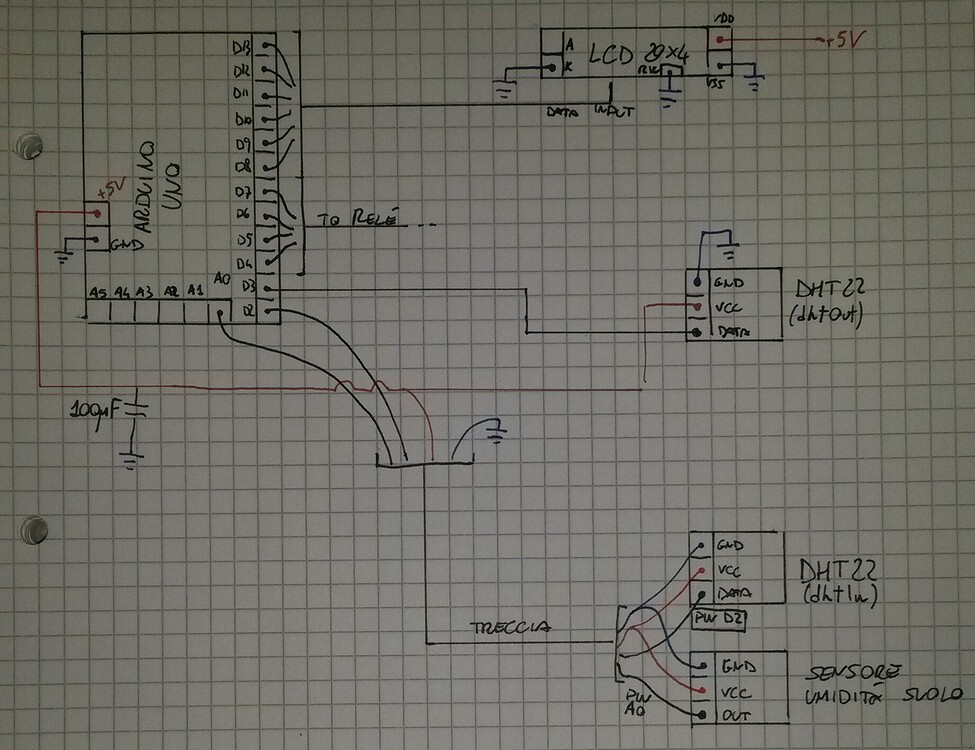 VDD
D13
D12
D11
D10
D9
D8
D7
D6
D5
D4
D3
D2
A
K
LCD 20x4
RW
+5V
VSS
DATA INPUT
ARDUINO
UNO
+5V
GND
TO RELÉ
A5 A4 A3 A2 A1 A0
GND
VCC
DATA
DHT22
(dhtOut)
100µF
GND
VCC
DATA
DHT22
(dhtIn)
PIN D2
TRECCIA
GND
VCC
OUT
SENSORE
UMIDITÀ SUOLO
PIN
A0